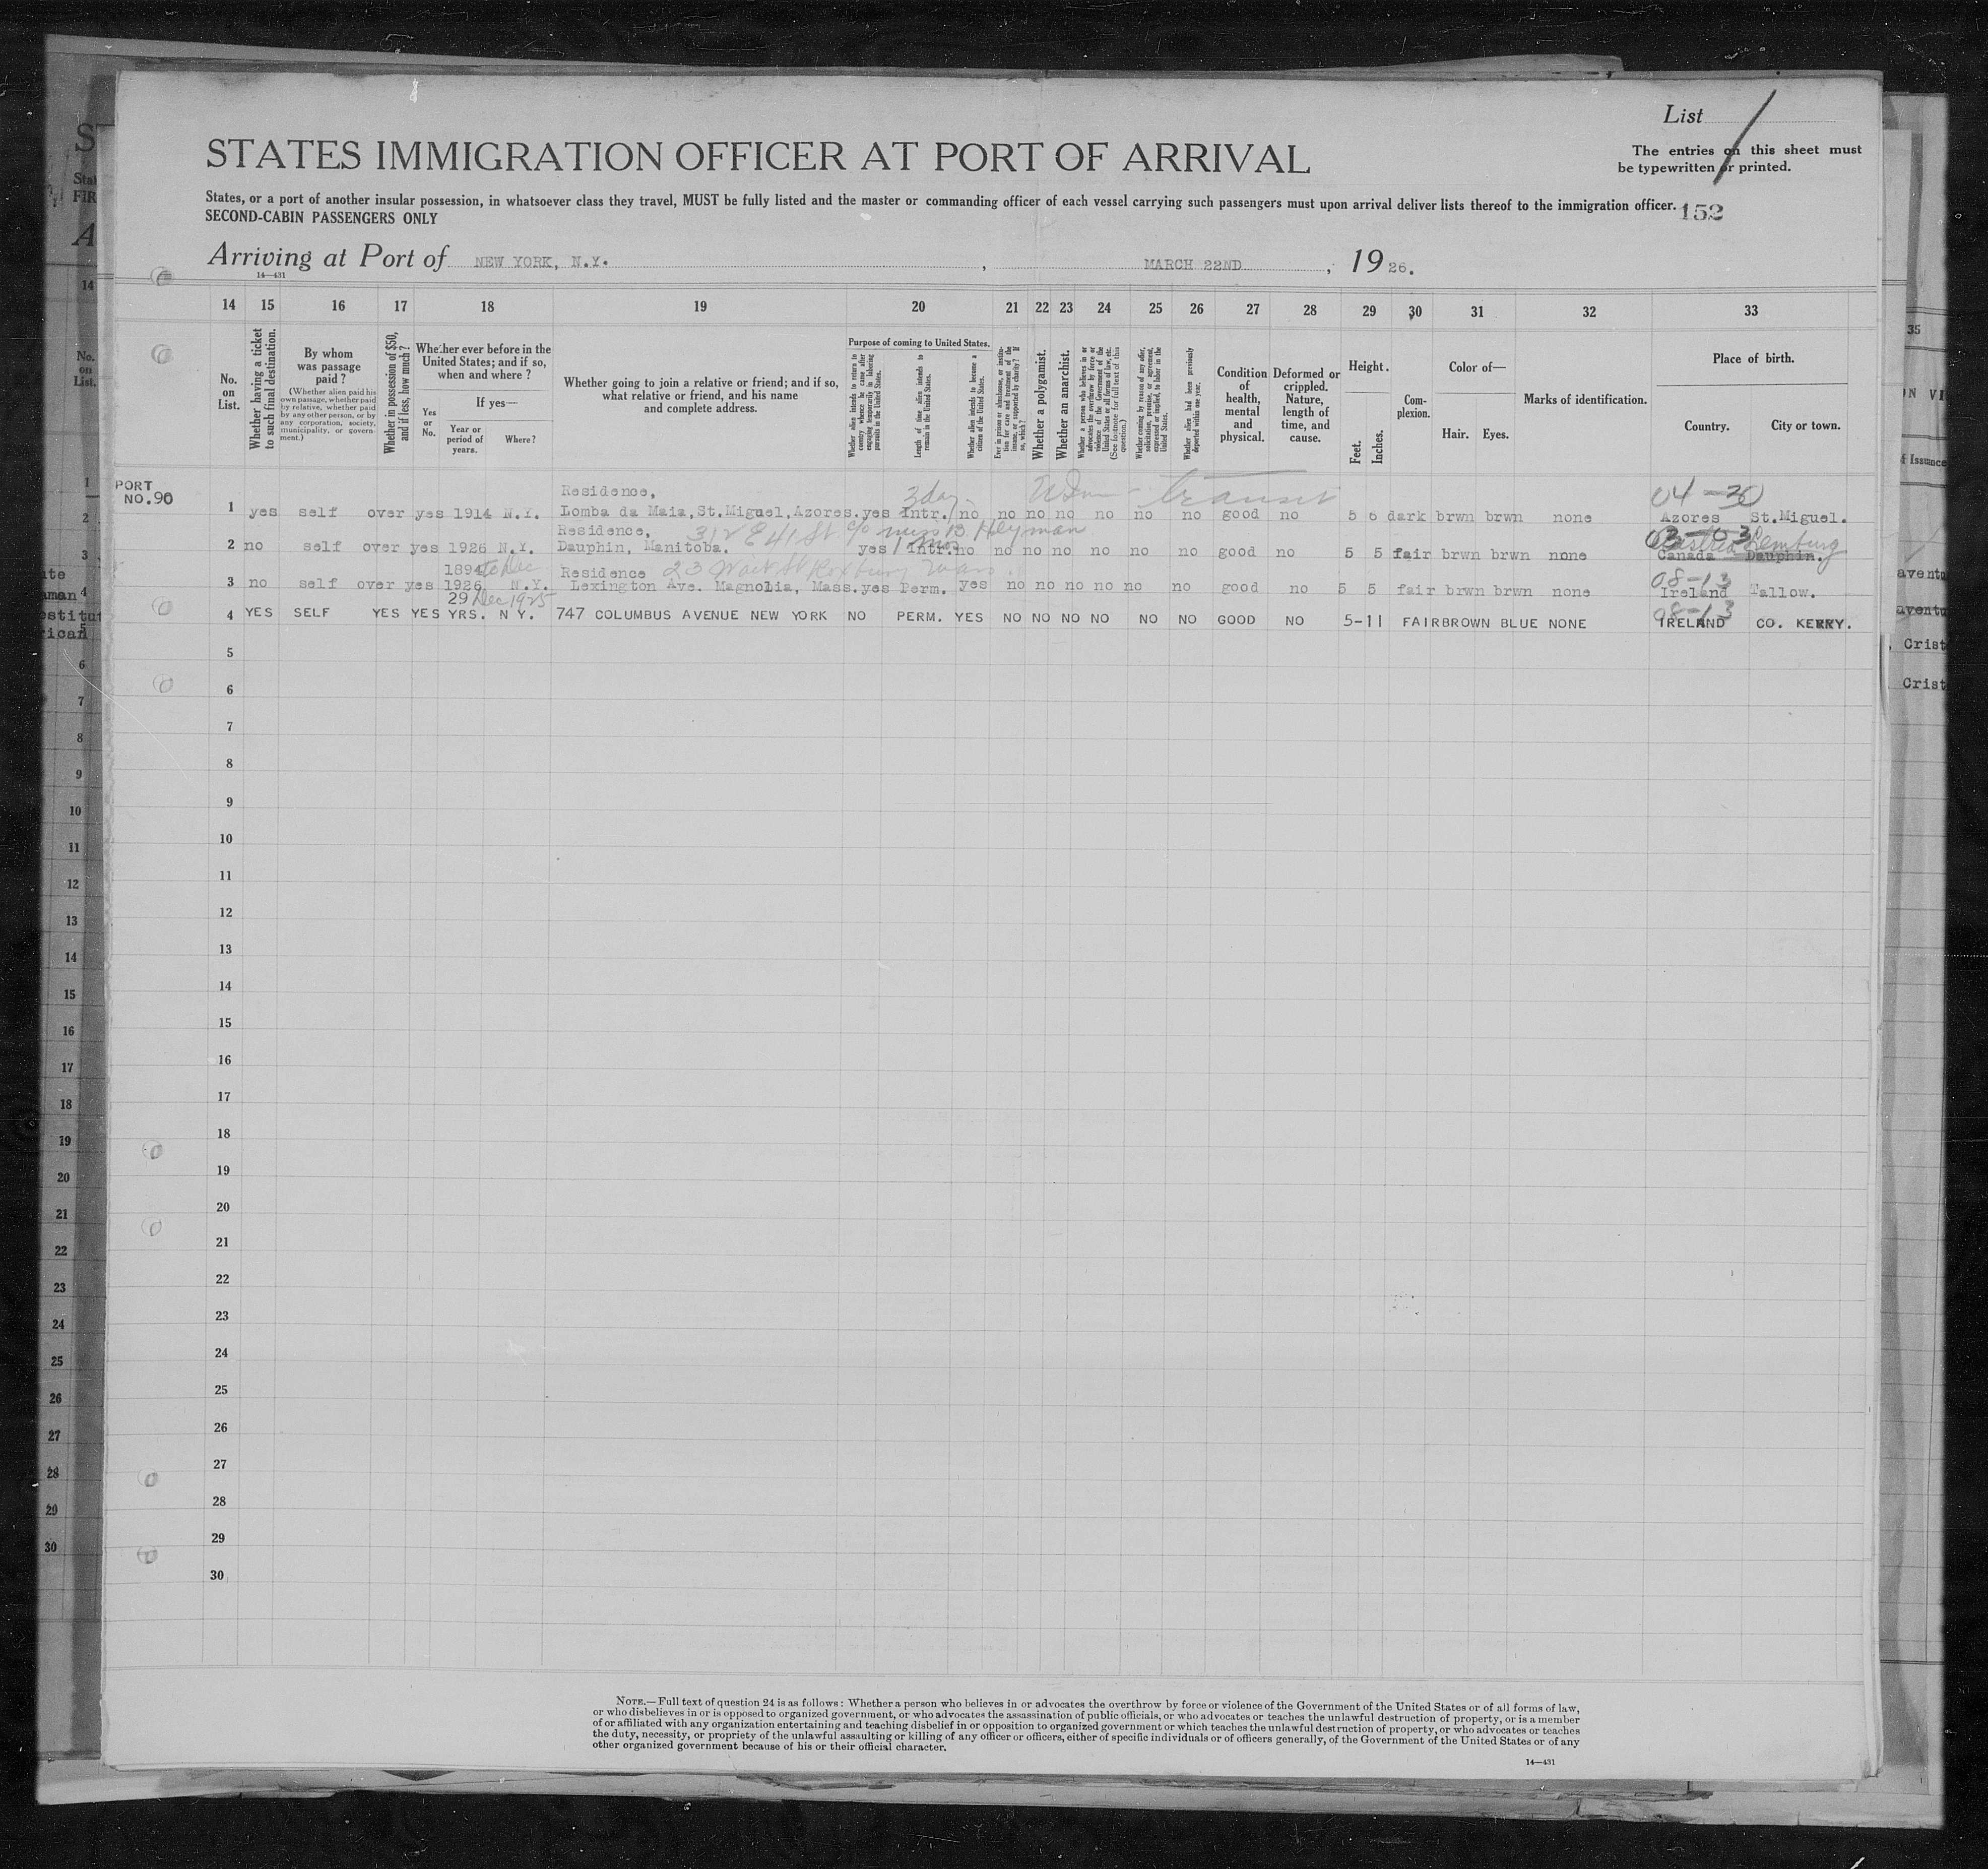 List
STATES IMMIGRATION OFFICER AT PORT OF ARRIVAL
The entries on this sheet must
be typewritten or printed.
States, or a port of another insular possession, in whatsoever class they travel, MUST be fully listed and the master or commanding officer of each vessel carrying such passengers must upon arrival deliver lists thereof to the immigration officer.
152
SECOND-CABIN PASSENGERS ONLY
Arriving at Port of NEW YORK, N.Y. , MARCH 22ND , 1926.
14—431
14 15 16 17 18 19 20 21 22 23 24 25 26 27 28 29 30 31 32 33
No. on List.
Whether having a ticket to such final destination.
By whom was passage paid?
(Whether alien paid his own passage, whether paid by relative, whether paid by any other person, or by any corporation, society, municipality, or government.)
Whether in possession of $50, and if less, how much?
Whether ever before in the United States; and if so, when and where?
Yes or No.
If yes—
Year or period of years.
Where?
Whether going to join a relative or friend; and if so, what relative or friend, and his name and complete address.
Purpose of coming to United States.
Whether alien intends to return to country whence he came after engaging temporarily in laboring pursuits in the United States.
Length of time alien intends to remain in the United States.
Whether alien intends to become a citizen of the United States.
Ever in prison or almshouse, or institution for care and treatment of the insane, or supported by charity? If so, which?
Whether a polygamist.
Whether an anarchist.
Whether a person who believes in or advocates the overthrow by force or violence of the Government of the United States or all forms of law, etc. (See footnote for full text of this question.)
Whether coming by reason of any offer, solicitation, promise, or agreement, expressed or implied, to labor in the United States.
Whether alien had been previously deported within one year.
Condition of health, mental and physical.
Deformed or crippled. Nature, length of time, and cause.
Height.
Feet.
Inches.
Complexion.
Color of—
Hair. Eyes.
Marks of identification.
Place of birth.
Country. City or town.
PORT
NO.90
Residence, 3 day transit 04-30
1 yes self over yes 1914 N.Y. Lomba da Maia,St.Miguel,Azores.yes Intr. no no no no no no no no good no 5 6 dark brwn brwn none Azores St.Miguel.
Residence, 312 E 41 St c/o Miss B. Heyman 03-03 Austria Lemburg
2 no self over yes 1926 N.Y. Dauphin, Manitoba. yes 1 mo Intr. no no no no no no no good no 5 5 fair brwn brwn none Canada Dauphin.
1894 to Dec Residence 23 St Roxbury 08-13
3 no self over yes 1926 N.Y. Lexington Ave. Magnolia, Mass.yes Perm. yes no no no no no no good no 5 5 fair brwn brwn none Ireland Tallow.
29 Dec 1925 08-13
4 YES SELF YES YES YRS. N Y. 747 COLUMBUS AVENUE NEW YORK NO PERM. YES NO NO NO NO NO NO GOOD NO 5-11 FAIR BROWN BLUE NONE IRELAND CO. KERRY.
5
6
7
8
9
10
11
12
13
14
15
16
17
18
19
20
21
22
23
24
25
26
27
28
29
30
NOTE.—Full text of question 24 is as follows: Whether a person who believes in or advocates the overthrow by force or violence of the Government of the United States or of all forms of law,
or who disbelieves in or is opposed to organized government, or who advocates the assassination of public officials, or who advocates or teaches the unlawful destruction of property, or is a member
of or affiliated with any organization entertaining and teaching disbelief in or opposition to organized government or which teaches the unlawful destruction of property, or who advocates or teaches
the duty, necessity, or propriety of the unlawful assaulting or killing of any officer or officers, either of specific individuals or of officers generally, of the Government of the United States or of any
other organized government because of his or their official character.
14—431